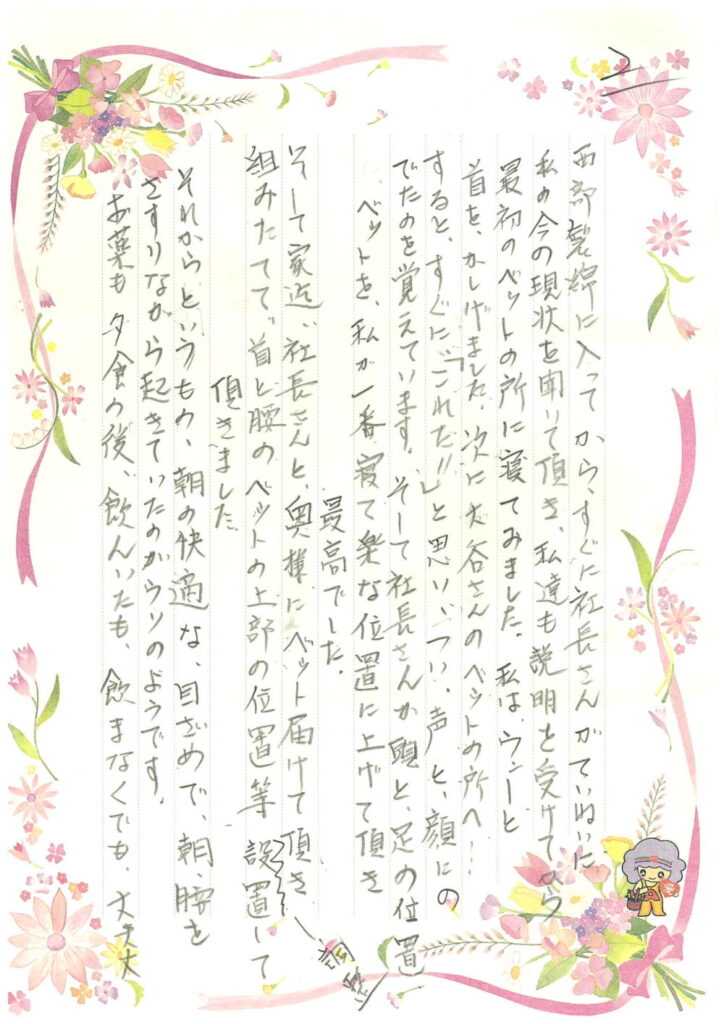 2
西部製綿に入ってから、すぐに社長さんがていねいに
私の今の現状を聞いて頂き、私達も説明を受けてから
最初のベットの所に寝てみました。私は、ウーンと
首を、かしげました、次に大谷さんのベットの所へ!
すると、すぐに「これだ!!」と思い、つい、声と、顔にの
でたのを覚えています。そして社長さんが頭と、足の位置
ベットを、私が一番寝て楽な位置に上げて頂き
最高でした。
そして家迄、社長さんと、奥様にベット届けて頂き
組みたてて、首と腰のベットの上部の位置等設置して
調整
頂きました、
それからというもの、朝の快適な、目ざめで、朝、腰を
さすりながら起きていたのがウソのようです。
お薬も夕食の後、飲んいたも、飲まなくでも、大丈夫